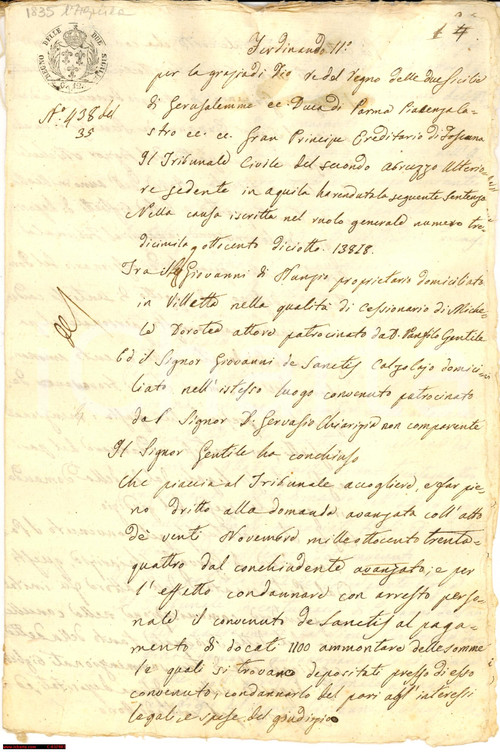 1835 L'Aquila
14
Ferdinando II°
per la grazia di Dio re del regno delle due Sicilie
di Gerusalemme ec. Duca di Parma Piacenza Ca-
stro ec. ec. Gran Principe Ereditario di Toscana
Il Tribunale Civile del secondo abruzzo Ulterio-
re sedente in aquila ha renduta la seguente Sentenza
Nella causa iscritta nel ruolo generale numero tre-
dicimila ottocento diciotto. 13818.
Tra il Sig Giovanni di Nunzio proprietario domiciliato
in Villetta nella qualità di Cessionario di Miche-
le Dorotea attore patrocinato da D. Panfilo Gentile
Ed il Signor Giovanni de Sanctis Calzolajo domici-
liato nell'istesso luogo convenuto patrocinato
dal Signor D. Gervasio non comparente
Il Signor Gentile ha conchiuso
Che piaccia al Tribunale accogliere, e far pie-
no dritto alla domanda avanzata coll'atto
de' venti Novembre mille ottocento trenta-
quattro dal conchiudente avanzata; e per
l'effetto condannare con arresto perso-
nale il convenuto de Sanctis al paga-
mento di docati 1100 ammontare delle somme
le quali si trovano depositati presso di esso
convenuto; condannarlo del pari agl'interessi
legali e spese del giudizio
N.° 438 del
35
DELLE DUE SICILIE
G. 12.